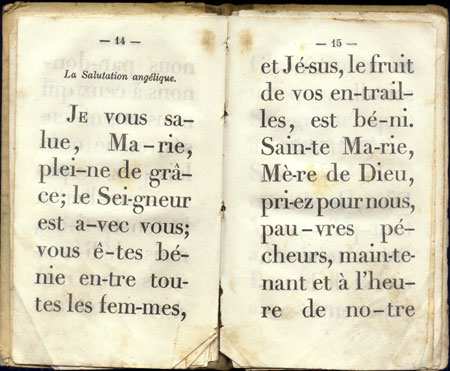 — 14 —
La Salutation angélique.
JE vous sa-
lue, Ma-rie,
plei-ne de grâ-
ce; le Sei-gneur
est a-vec vous;
vous ê-tes bé-
nie en-tre tou-
tes les fem-mes,
— 15 —
et Jé-sus, le fruit
de vos en-trail-
les, est bé-ni.
Sain-te Ma-rie,
Mè-re de Dieu,
pri-ez pour nous,
pau-vres pé-
cheurs, main-te-
nant et à l'heu-
re de no-tre